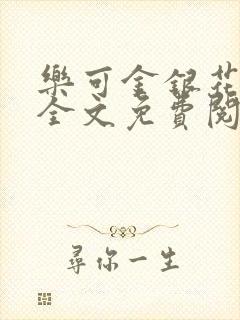 樂可金銀花
全文免費閱
尋你一生